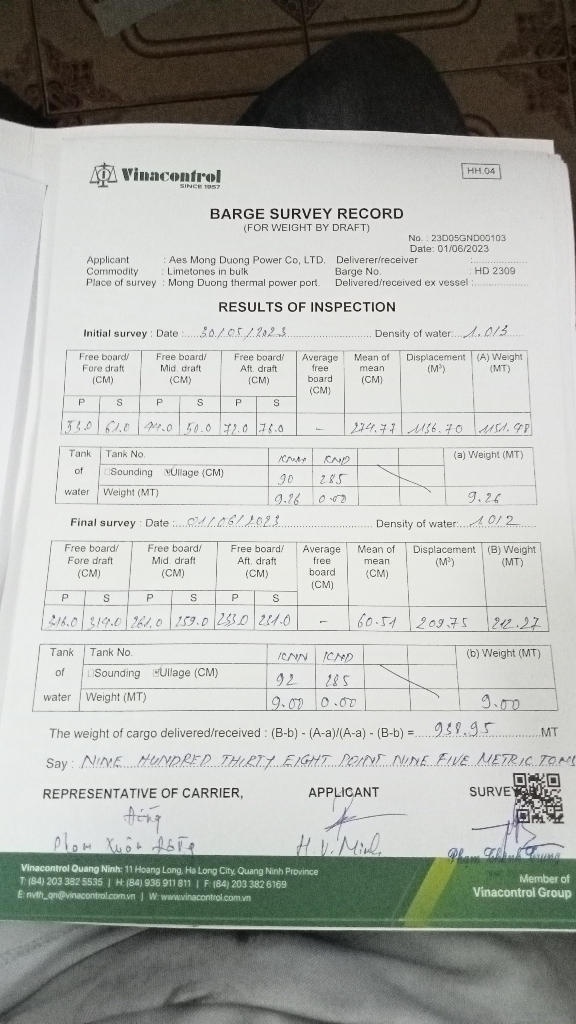 Vinacontrol
SINCE 1957
HH.04
BARGE SURVEY RECORD
(FOR WEIGHT BY DRAFT)
No. : 23D05GND00103
Date: 01/06/2023
Applicant : Aes Mong Duong Power Co, LTD. Deliverer/receiver :
Commodity : Limetones in bulk Barge No. : HD 2309
Place of survey : Mong Duong thermal power port. Delivered/received ex vessel :
RESULTS OF INSPECTION
Initial survey : Date : 30/05/2023 Density of water: 1.013
Free board/ Fore draft (CM) Free board/ Mid. draft (CM) Free board/ Aft. draft (CM) Average free board (CM) Mean of mean (CM) Displacement (M³) (A) Weight (MT)
P S P S P S
53.0 61.0 44.0 50.0 72.0 78.0 - 274.77 1136.70 1151.48
Tank of water Tank No. KNN KND (a) Weight (MT)
Sounding Ullage (CM) 90 285
Weight (MT) 9.26 0.00 9.26
Final survey : Date : 01/06/2023 Density of water: 1.012
Free board/ Fore draft (CM) Free board/ Mid. draft (CM) Free board/ Aft. draft (CM) Average free board (CM) Mean of mean (CM) Displacement (M³) (B) Weight (MT)
P S P S P S
316.0 314.0 261.0 259.0 233.0 231.0 - 60.51 209.75 212.27
Tank of water Tank No. KNN KND (b) Weight (MT)
Sounding Ullage (CM) 92 285
Weight (MT) 9.00 0.00 9.00
The weight of cargo delivered/received : (B-b) - (A-a)/(A-a) - (B-b) = 938.95 MT
Say : NINE HUNDRED THIRTY EIGHT POINT NINE FIVE METRIC TONS
REPRESENTATIVE OF CARRIER, APPLICANT SURVEY
Phạm Xuân Đồng H.V. Minh
Vinacontrol Quang Ninh: 11 Hoang Long, Ha Long City, Quang Ninh Province
T: (84) 203 382 5535 | H: (84) 936 911 811 | F: (84) 203 382 6169
E: nvth_qn@vinacontrol.com.vn | W: www.vinacontrol.com.vn
Member of
Vinacontrol Group